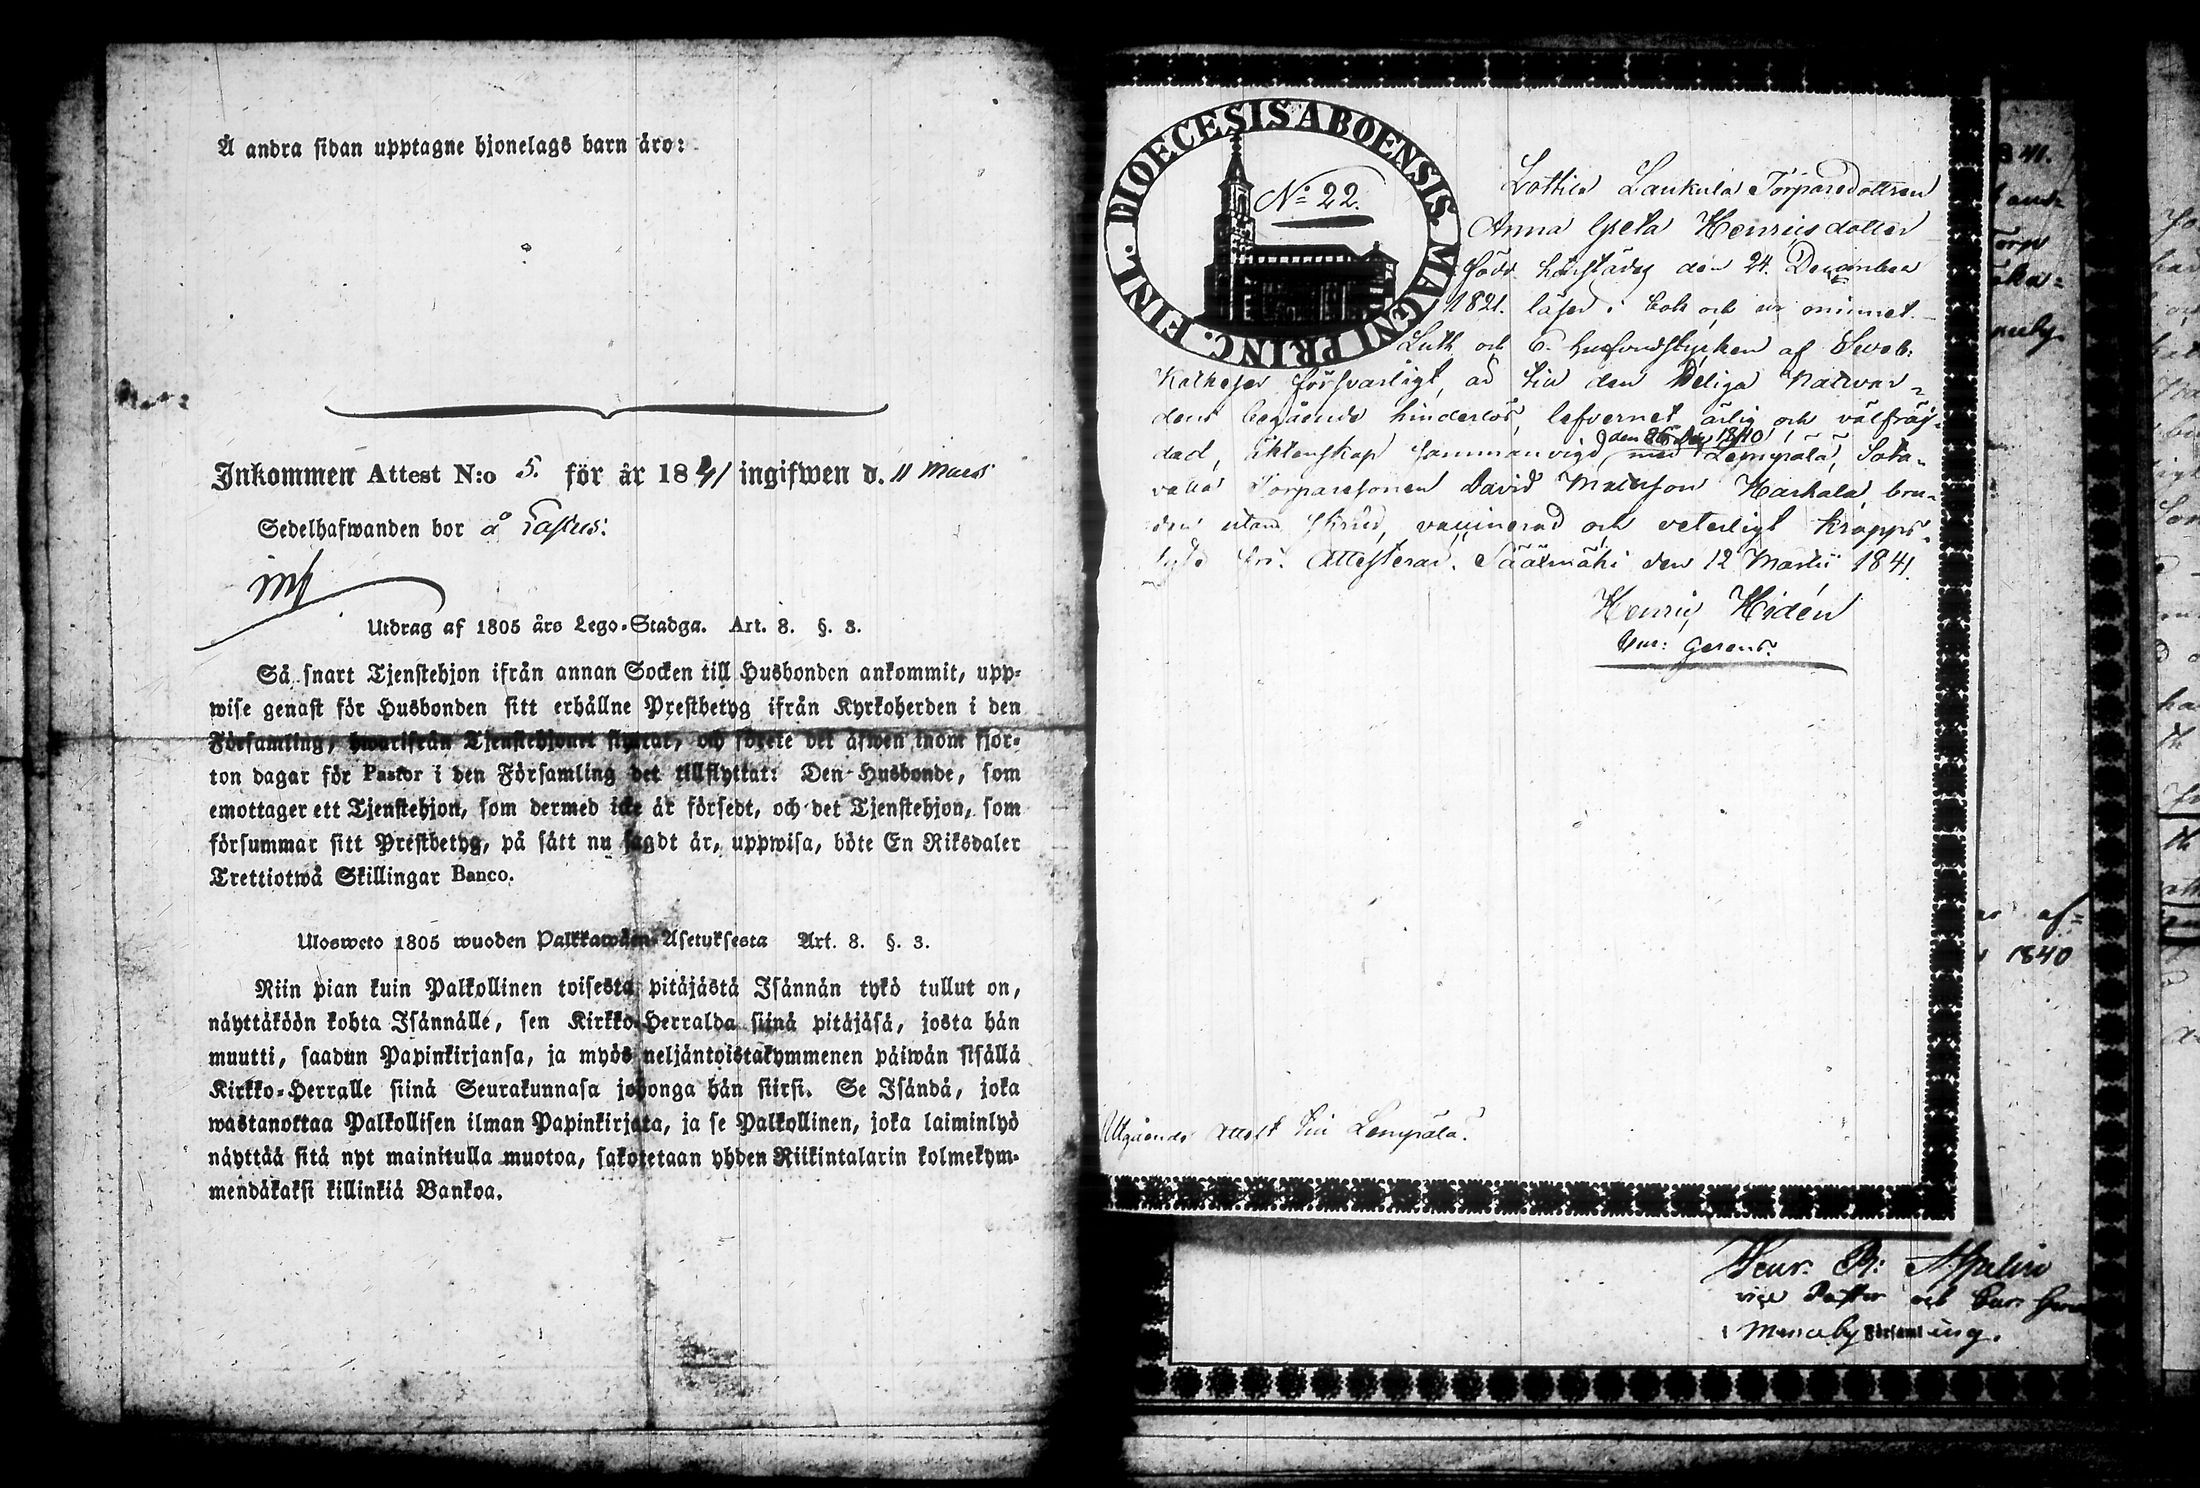 Å andra sidan upptagne hjonelags barn äro:
Inkommen Attest N:o 5. för år 1841 ingifwen d. 11 Mars
Sedelhafwanden bor å
Utdrag af 1805 års Lego-Stadga. Art. 8. §. 3.
Så snart Tjenstehjon ifrån annan Socken till Husbonden ankommit, upp-
wise genast för Husbonden sitt erhållne Prestbetyg ifrån Kyrkoherden i den
Församling, hwarifrån Tjenstehjonet flyttat, och förete det äfwen inom fjor-
ton dagar för Pastor i den Församling det tillflyttat: Den Husbonde, som
emottager ett Tjenstehjon, som dermed icke är försedt, och det Tjenstehjon, som
försummar sitt Prestbetyg, på sätt nu sagdt är, uppwisa, böte En Riksdaler
Trettiotwå Skillingar Banco.
Ulosweto 1805 wuoden Palkkawäen-Asetuksesta Art. 8. §. 3.
Niin pian kuin Palkollinen toisesta pitäjästä Isännän tykö tullut on,
näyttäköön kohta Isännälle, sen Kirkko-Herralda siinä pitäjäsä, josta hän
muutti, saadun Papinkirjansa, ja myös neljäntoistakymmenen päiwän sisällä
Kirkko-Herralle siinä Seurakunnasa johonga hän siirsi. Se Isändä, joka
wastanottaa Palkollisen ilman Papinkirjata, ja se Palkollinen, joka laiminlyö
näyttää sitä nyt mainitulla muotoa, sakotetaan yhden Riikintalarin kolmekym-
mendäkaksi killinkiä Bankoa.
DIOECESIS ABOENSIS. MAGNI PRINC. FINL.
No 22.
Lottila Laukula Torparedottren
Anna Greta Henricsdotter
född härstädes den 24. December
1821. läser i bok och ur minnet
Luth. och 6. hufvudstycken af Sveb:
Katheser försvarligt, är till den Heliga Nattvar-
dens begående hinderlös, lefvernet ärlig och välfräj-
dad, äktenskap sammanvigd den 26 1840 med Lempälä, Sota-
valla Torparesonen David Mattsson Harkala, bru-
den utan skrud, vaccinerad och veterligt kropps-
lyte fri. Attesterar. Sääxmäki den 12 Martii 1841.
Henric Hidén
Cur: Gerens.
Utgående Attest till Lempälä.
Henr. R:
vice Pastor och Cur: Gerens
i församling.
af-
1840